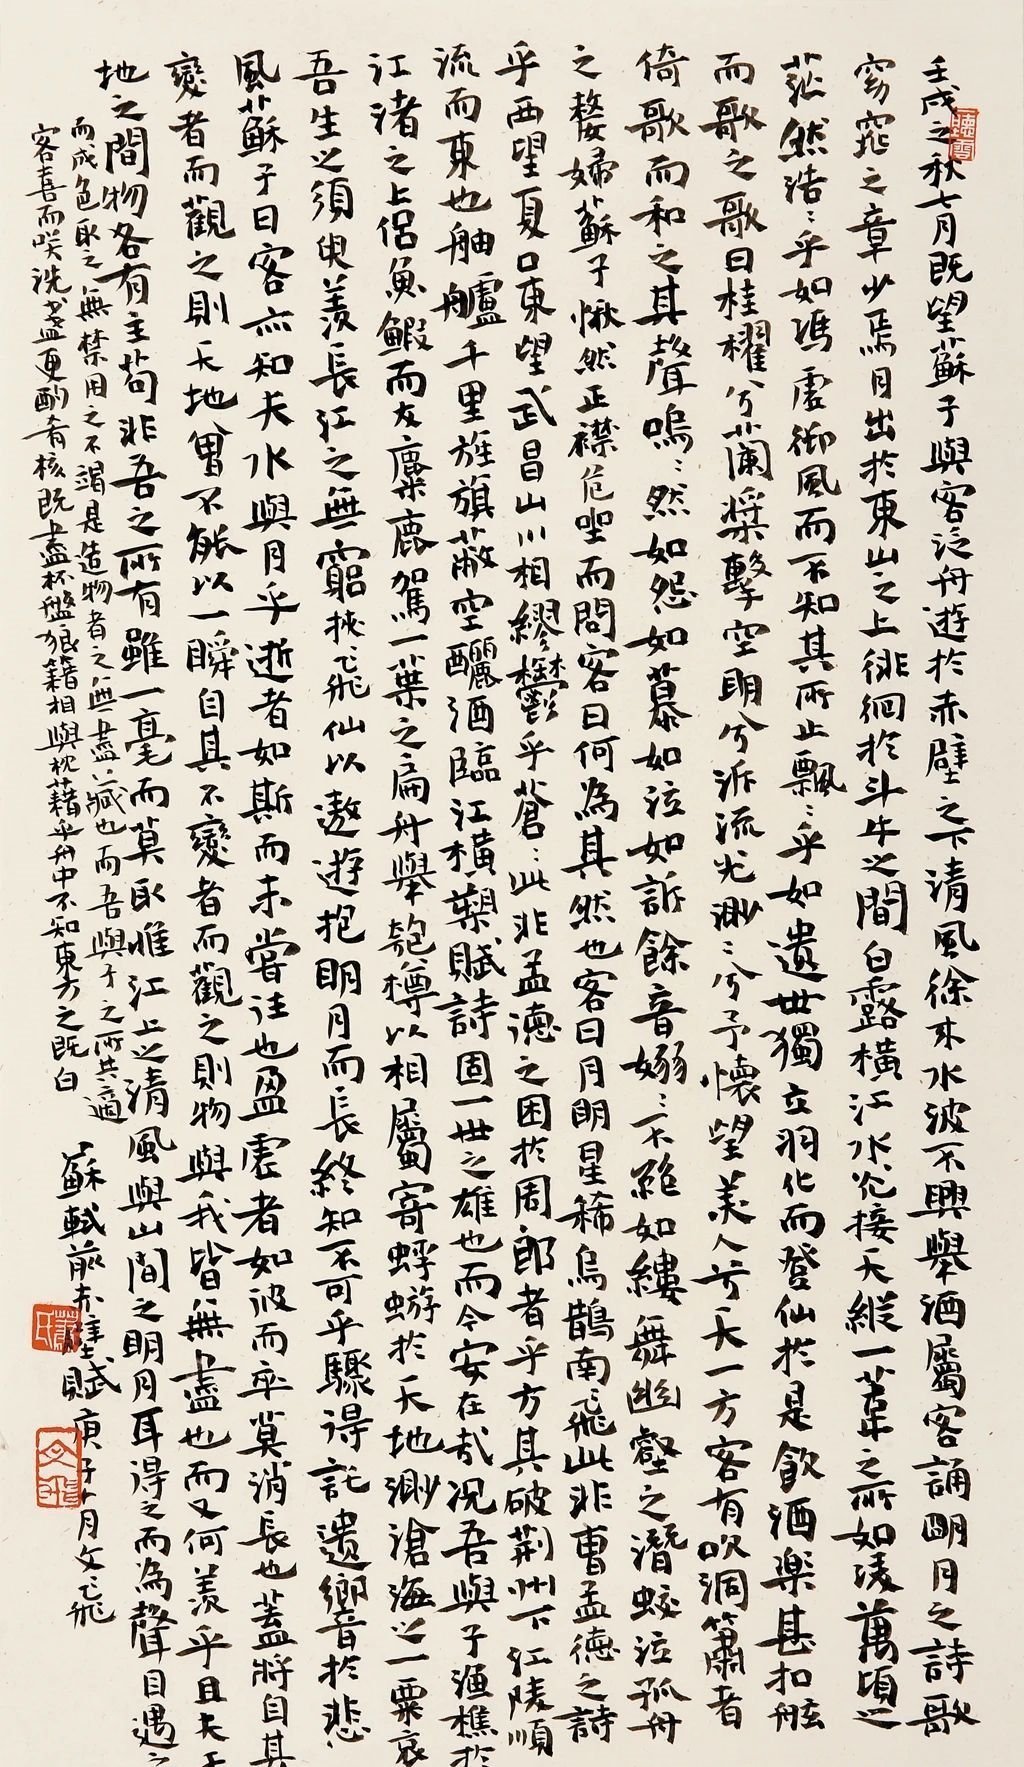 壬戌之秋七月既望蘇子與客泛舟遊於赤壁之下清風徐來水波不興舉酒屬客誦明月之詩歌
窈窕之章少焉月出於東山之上徘徊於斗牛之間白露橫江水光接天縱一葦之所如淩萬頃之
茫然浩〻乎如馮虛御風而不知其所止飄〻乎如遺世獨立羽化而登仙於是飲酒樂甚扣舷
而歌之歌曰桂櫂兮蘭槳擊空明兮泝流光渺〻兮予懷望美人兮天一方客有吹洞簫者
倚歌而和之其聲嗚〻然如怨如慕如泣如訴餘音嫋〻不絕如縷舞幽壑之潛蛟泣孤舟
之嫠婦蘇子愀然正襟危坐而問客曰何為其然也客曰月明星稀烏鵲南飛此非曹孟德之詩
乎西望夏口東望武昌山川相繆鬱乎蒼〻此非孟德之困於周郎者乎方其破荊州下江陵順
流而東也舳艫千里旌旗蔽空釃酒臨江橫槊賦詩固一世之雄也而今安在哉况吾與子漁樵於
江渚之上侶魚鰕而友麋鹿駕一葉之扁舟舉匏樽以相屬寄蜉蝣於天地渺滄海之一粟哀
吾生之須臾羨長江之無窮挾飛仙以遨遊抱明月而長終知不可乎驟得託遺響於悲
風蘇子曰客亦知夫水與月乎逝者如斯而未嘗往也盈虛者如彼而卒莫消長也蓋將自其
變者而觀之則天地曾不能以一瞬自其不變者而觀之則物與我皆無盡也而又何羨乎且夫天
地之間物各有主苟非吾之所有雖一毫而莫取惟江上之清風與山間之明月耳得之而為聲目遇之
而成色取之無禁用之不竭是造物者之無盡藏也而吾與子之所共適
客喜而咲洗盞更酌肴核既盡杯盤狼籍相與枕藉乎舟中不知東方之既白
蘇軾前赤壁賦
庚子十月文飛
聽雲